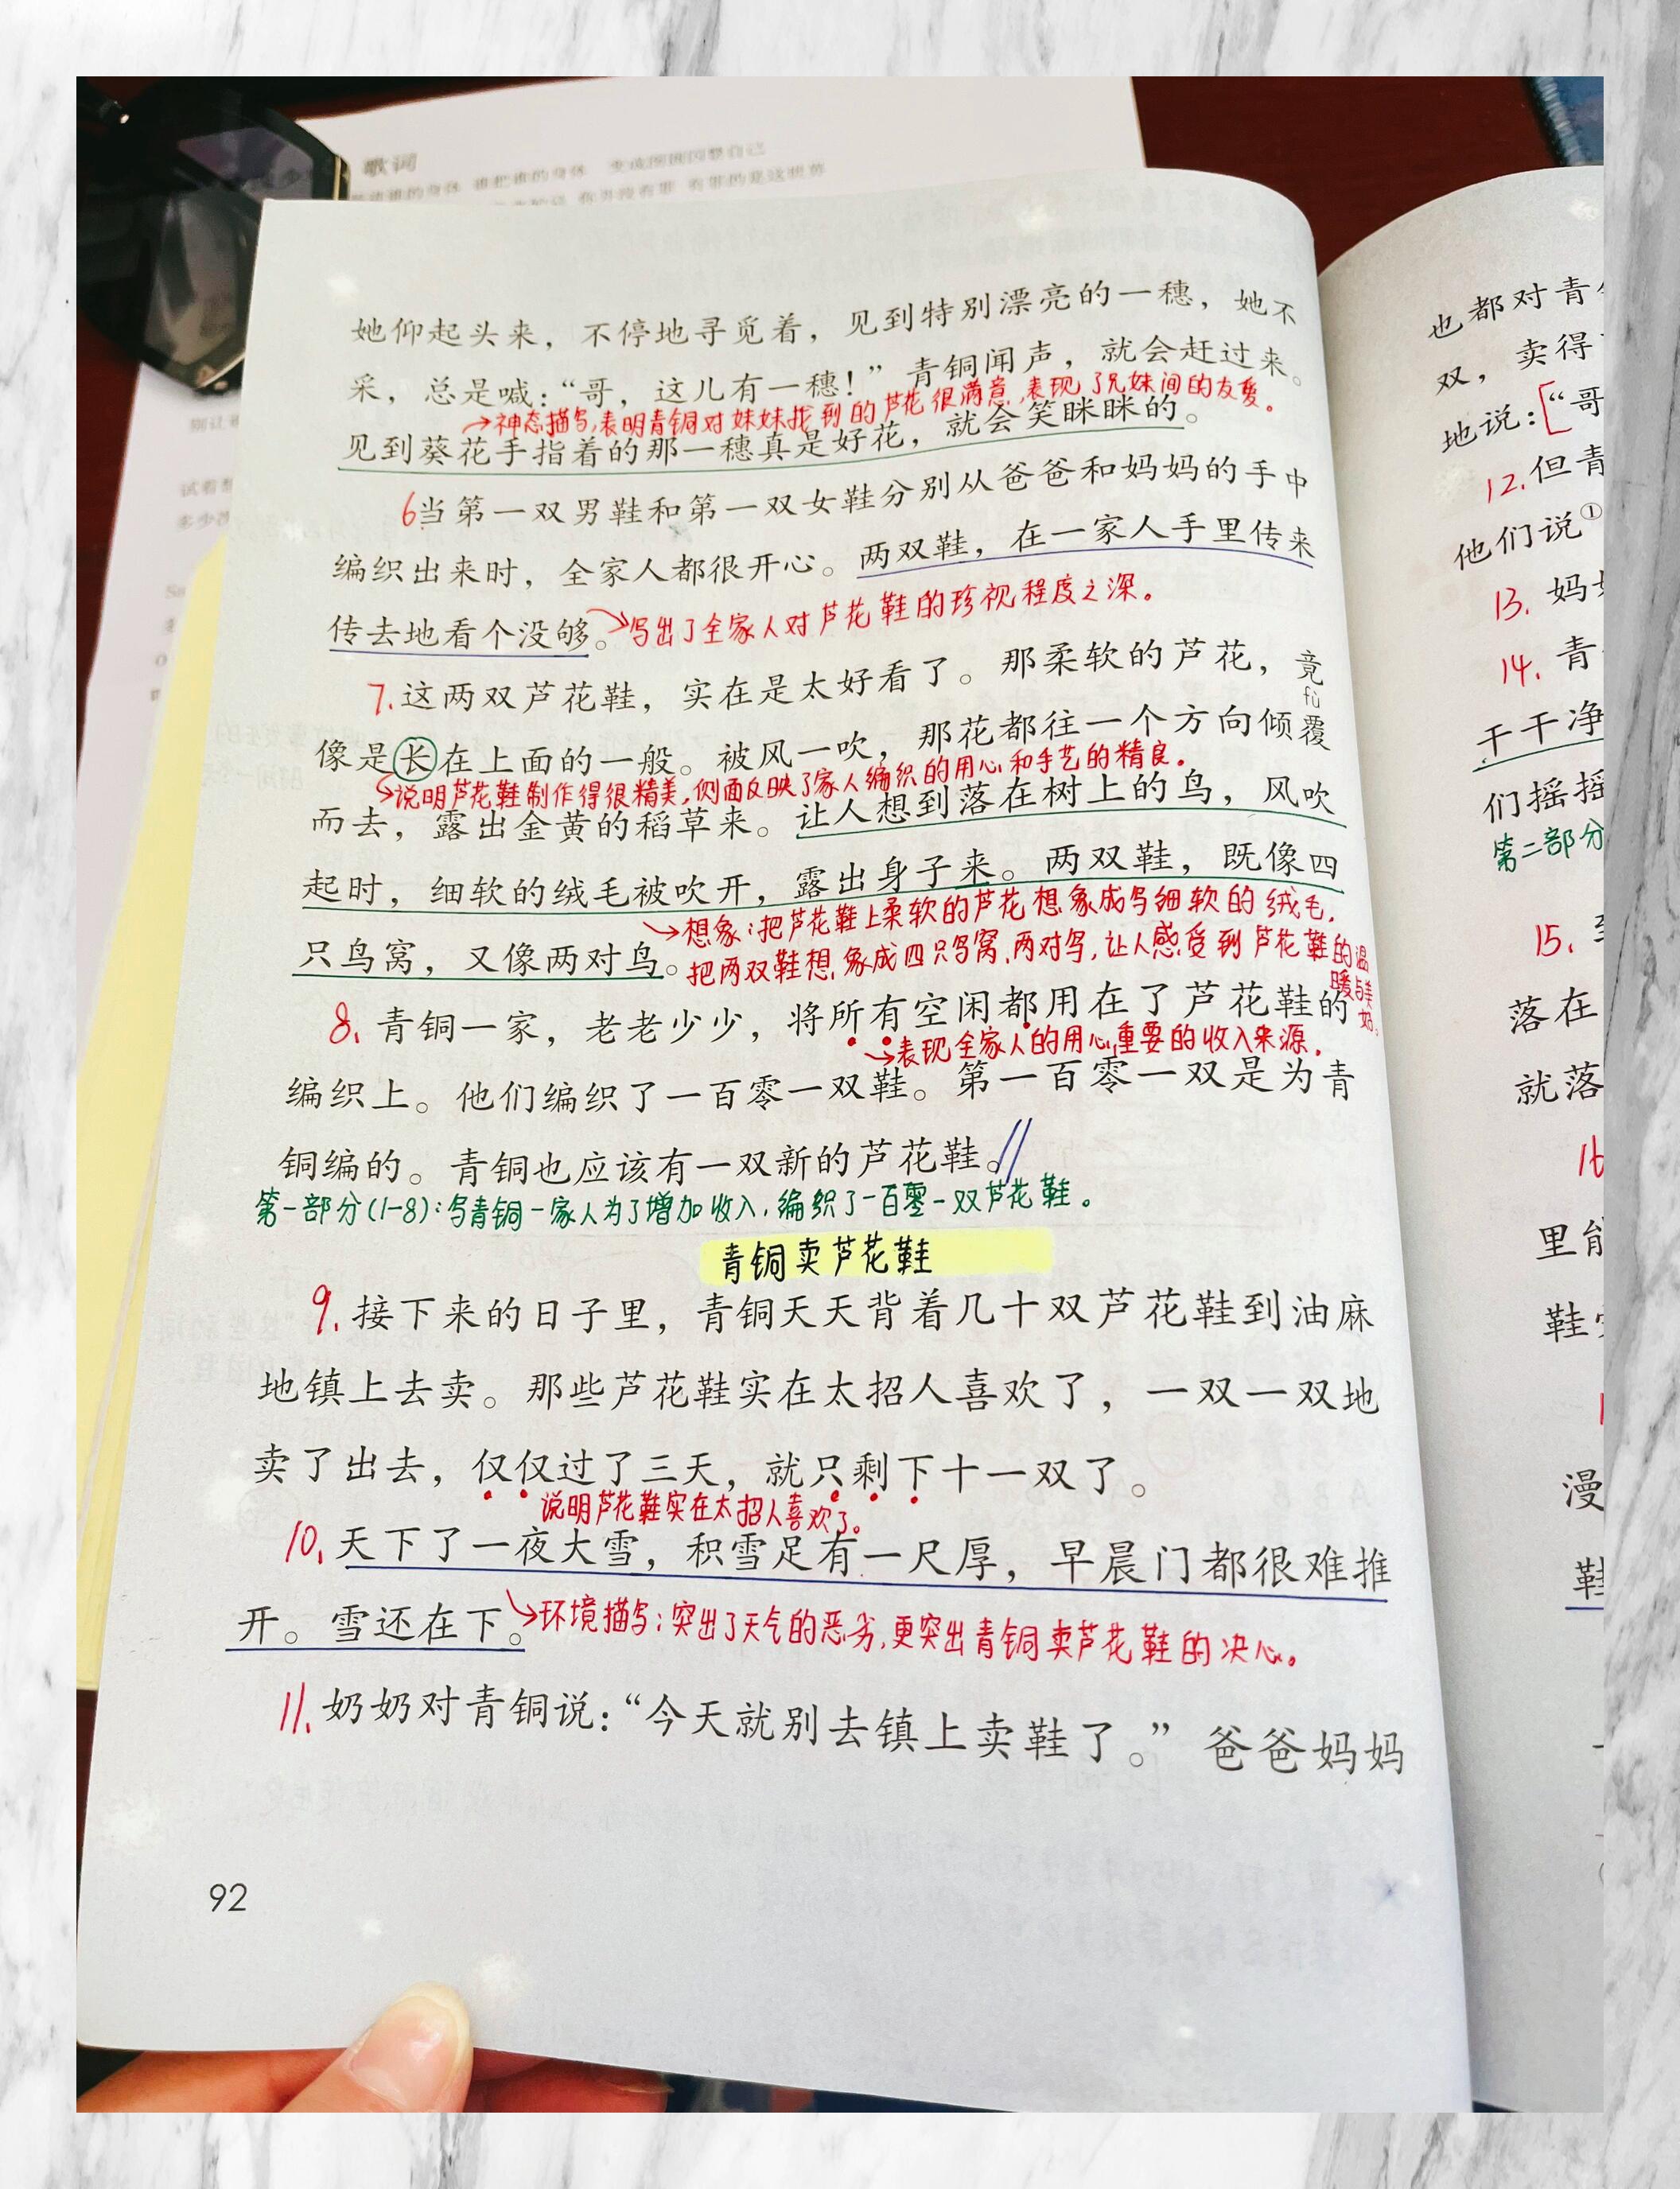 歌词
她仰起头来，不停地寻觅着，见到特别漂亮的一穗，她不
采，总是喊：“哥，这儿有一穗！”青铜闻声，就会赶过来。
→神态描写，表明青铜对妹妹找到的芦花很满意，表现了兄妹间的友爱。
见到葵花手指着的那一穗真是好花，就会笑眯眯的。
6当第一双男鞋和第一双女鞋分别从爸爸和妈妈的手中
编织出来时，全家人都很开心。两双鞋，在一家人手里传来
传去地看个没够。→写出了全家人对芦花鞋的珍视程度之深。
7.这两双芦花鞋，实在是太好看了。那柔软的芦花，竟
fù
像是长在上面的一般。被风一吹，那花都往一个方向倾覆
→说明芦花鞋制作得很精美，侧面反映了家人编织的用心和手艺的精良。
而去，露出金黄的稻草来。让人想到落在树上的鸟，风吹
起时，细软的绒毛被吹开，露出身子来。两双鞋，既像四
→想象：把芦花鞋上柔软的芦花想象成鸟细软的绒毛，
只鸟窝，又像两对鸟。把两双鞋想象成四只鸟窝、两对鸟，让人感受到芦花鞋的温暖与美好。
8.青铜一家，老老少少，将所有空闲都用在了芦花鞋的
→表现全家人的用心，重要的收入来源。
编织上。他们编织了一百零一双鞋。第一百零一双是为青
铜编的。青铜也应该有一双新的芦花鞋。//
第一部分(1-8)：写青铜一家人为了增加收入，编织了一百零一双芦花鞋。
青铜卖芦花鞋
9.接下来的日子里，青铜天天背着几十双芦花鞋到油麻
地镇上去卖。那些芦花鞋实在太招人喜欢了，一双一双地
卖了出去，仅仅过了三天，就只剩下十一双了。
说明芦花鞋实在太招人喜欢了。
10.天下了一夜大雪，积雪足有一尺厚，早晨门都很难推
开。雪还在下。→环境描写：突出了天气的恶劣，更突出青铜卖芦花鞋的决心。
11.奶奶对青铜说：“今天就别去镇上卖鞋了。”爸爸妈妈
92
也都对青
双，卖得
地说：[“哥
12.但青
他们说①
13.妈
14.青
干干净
们摇摇
第二部分
15.
落在
就落
16
里能
鞋
漫
鞋